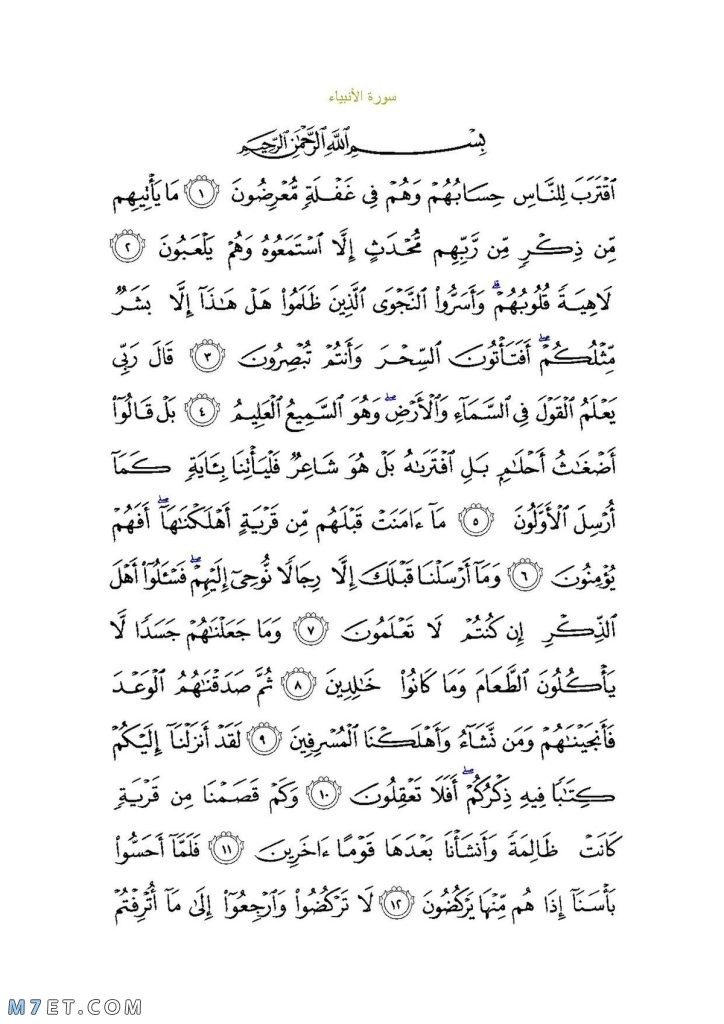 سورة الأنبياء
بِسْمِ اللَّهِ الرَّحْمَٰنِ الرَّحِيمِ
اقْتَرَبَ لِلنَّاسِ حِسَابُهُمْ وَهُمْ فِي غَفْلَةٍ مُّعْرِضُونَ ١ مَا يَأْتِيهِم
مِّن ذِكْرٍ مِّن رَّبِّهِم مُّحْدَثٍ إِلَّا اسْتَمَعُوهُ وَهُمْ يَلْعَبُونَ ٢
لَاهِيَةً قُلُوبُهُمْ ۗ وَأَسَرُّوا۟ النَّجْوَى الَّذِينَ ظَلَمُوا۟ هَلْ هَٰذَآ إِلَّا بَشَرٌ
مِّثْلُكُمْ ۖ أَفَتَأْتُونَ السِّحْرَ وَأَنتُمْ تُبْصِرُونَ ٣ قَالَ رَبِّي
يَعْلَمُ الْقَوْلَ فِي السَّمَآءِ وَالْأَرْضِ ۖ وَهُوَ السَّمِيعُ الْعَلِيمُ ٤ بَلْ قَالُوٓا۟
أَضْغَٰثُ أَحْلَٰمٍ بَلِ افْتَرَىٰهُ بَلْ هُوَ شَاعِرٌ فَلْيَأْتِنَا بِـَٔايَةٍ كَمَآ
أُرْسِلَ الْأَوَّلُونَ ٥ مَآ ءَامَنَتْ قَبْلَهُم مِّن قَرْيَةٍ أَهْلَكْنَٰهَآ ۖ أَفَهُمْ
يُؤْمِنُونَ ٦ وَمَآ أَرْسَلْنَا قَبْلَكَ إِلَّا رِجَالًا نُّوحِيٓ إِلَيْهِمْ ۖ فَسْـَٔلُوٓا۟ أَهْلَ
الذِّكْرِ إِن كُنتُمْ لَا تَعْلَمُونَ ٧ وَمَا جَعَلْنَٰهُمْ جَسَدًا لَّا
يَأْكُلُونَ الطَّعَامَ وَمَا كَانُوا۟ خَٰلِدِينَ ٨ ثُمَّ صَدَقْنَٰهُمُ الْوَعْدَ
فَأَنجَيْنَٰهُمْ وَمَن نَّشَآءُ وَأَهْلَكْنَا الْمُسْرِفِينَ ٩ لَقَدْ أَنزَلْنَآ إِلَيْكُمْ
كِتَٰبًا فِيهِ ذِكْرُكُمْ ۖ أَفَلَا تَعْقِلُونَ ١٠ وَكَمْ قَصَمْنَا مِن قَرْيَةٍ
كَانَتْ ظَالِمَةً وَأَنشَأْنَا بَعْدَهَا قَوْمًا ءَاخَرِينَ ١١ فَلَمَّآ أَحَسُّوا۟
بَأْسَنَآ إِذَا هُم مِّنْهَا يَرْكُضُونَ ١٢ لَا تَرْكُضُوا۟ وَارْجِعُوٓا۟ إِلَىٰ مَآ أُتْرِفْتُمْ
M7ET.COM